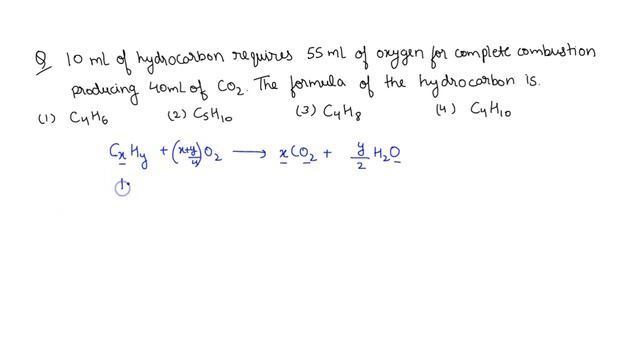 Q 10 mL of hydrocarbon requires 55 mL of oxygen for complete combustion
producing 40mL of CO2. The formula of the hydrocarbon is.
(1) C4H6 (2) C5H10 (3) C4H8 (4) C4H10
CxHy + (x+y/4)O2 ⟶ xCO2 + y/2 H2O
1.